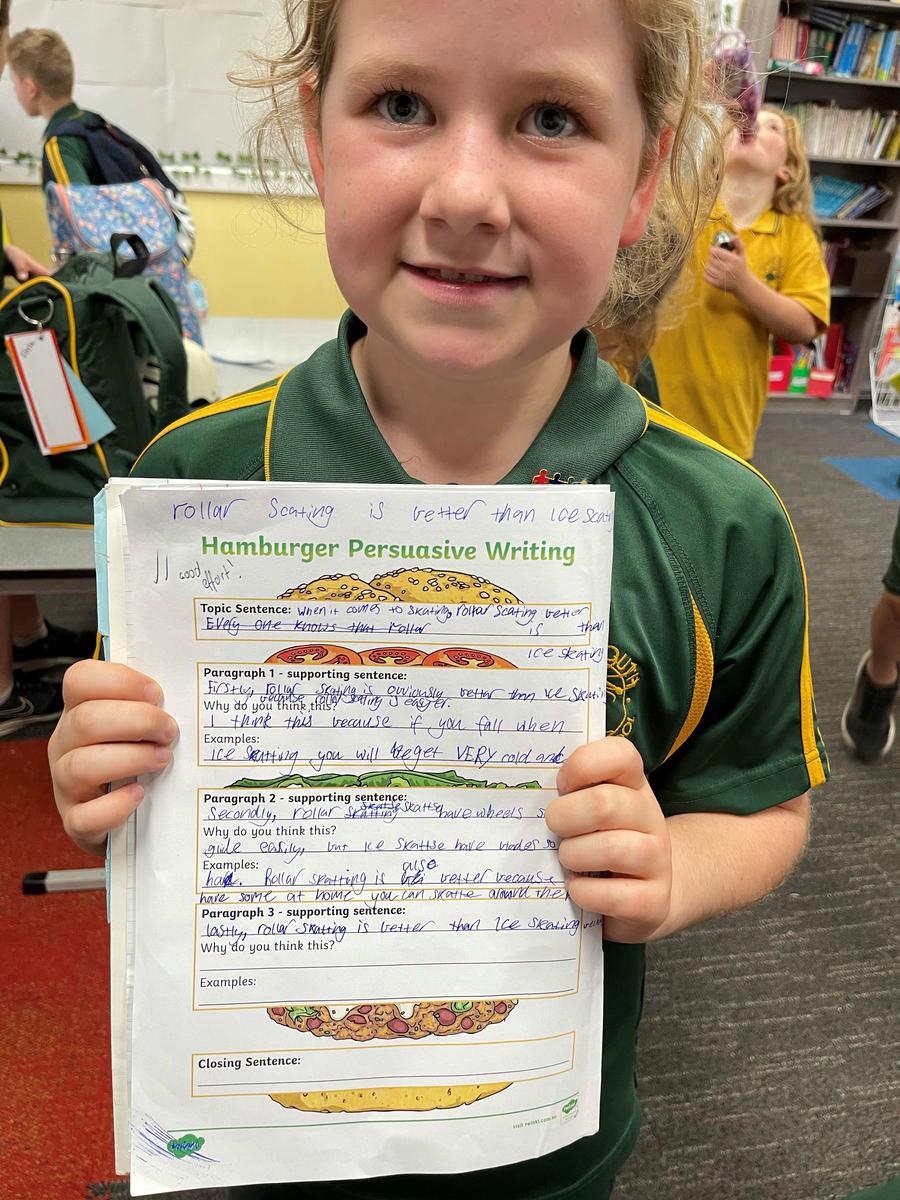 rollar Scating is better than ice scati
Hamburger Persuasive Writing
11 Good effort!
Topic Sentence: When it comes to skating, rollar scating better
Every one knows that rollar is than
ice skating
Paragraph 1 - supporting sentence:
Firstly, rollar skating is obviously better than ice skatin
because rollar skating is easyer.
Why do you think this?
I think this because if you fall when
Examples:
ice skatting you will get VERY cold and
Paragraph 2 - supporting sentence:
Secondly, rollar skatting skatse skattse have wheels s
Why do you think this?
glide easily, but ice skattse have blades so
Examples: also
hard. Rollar skatting is better because
have some at home you can skatte around the
Paragraph 3 - supporting sentence:
lastly, rollar skatting is better than ice skating
Why do you think this?
Examples:
Closing Sentence:
visit twinkl.com.au
twinkl